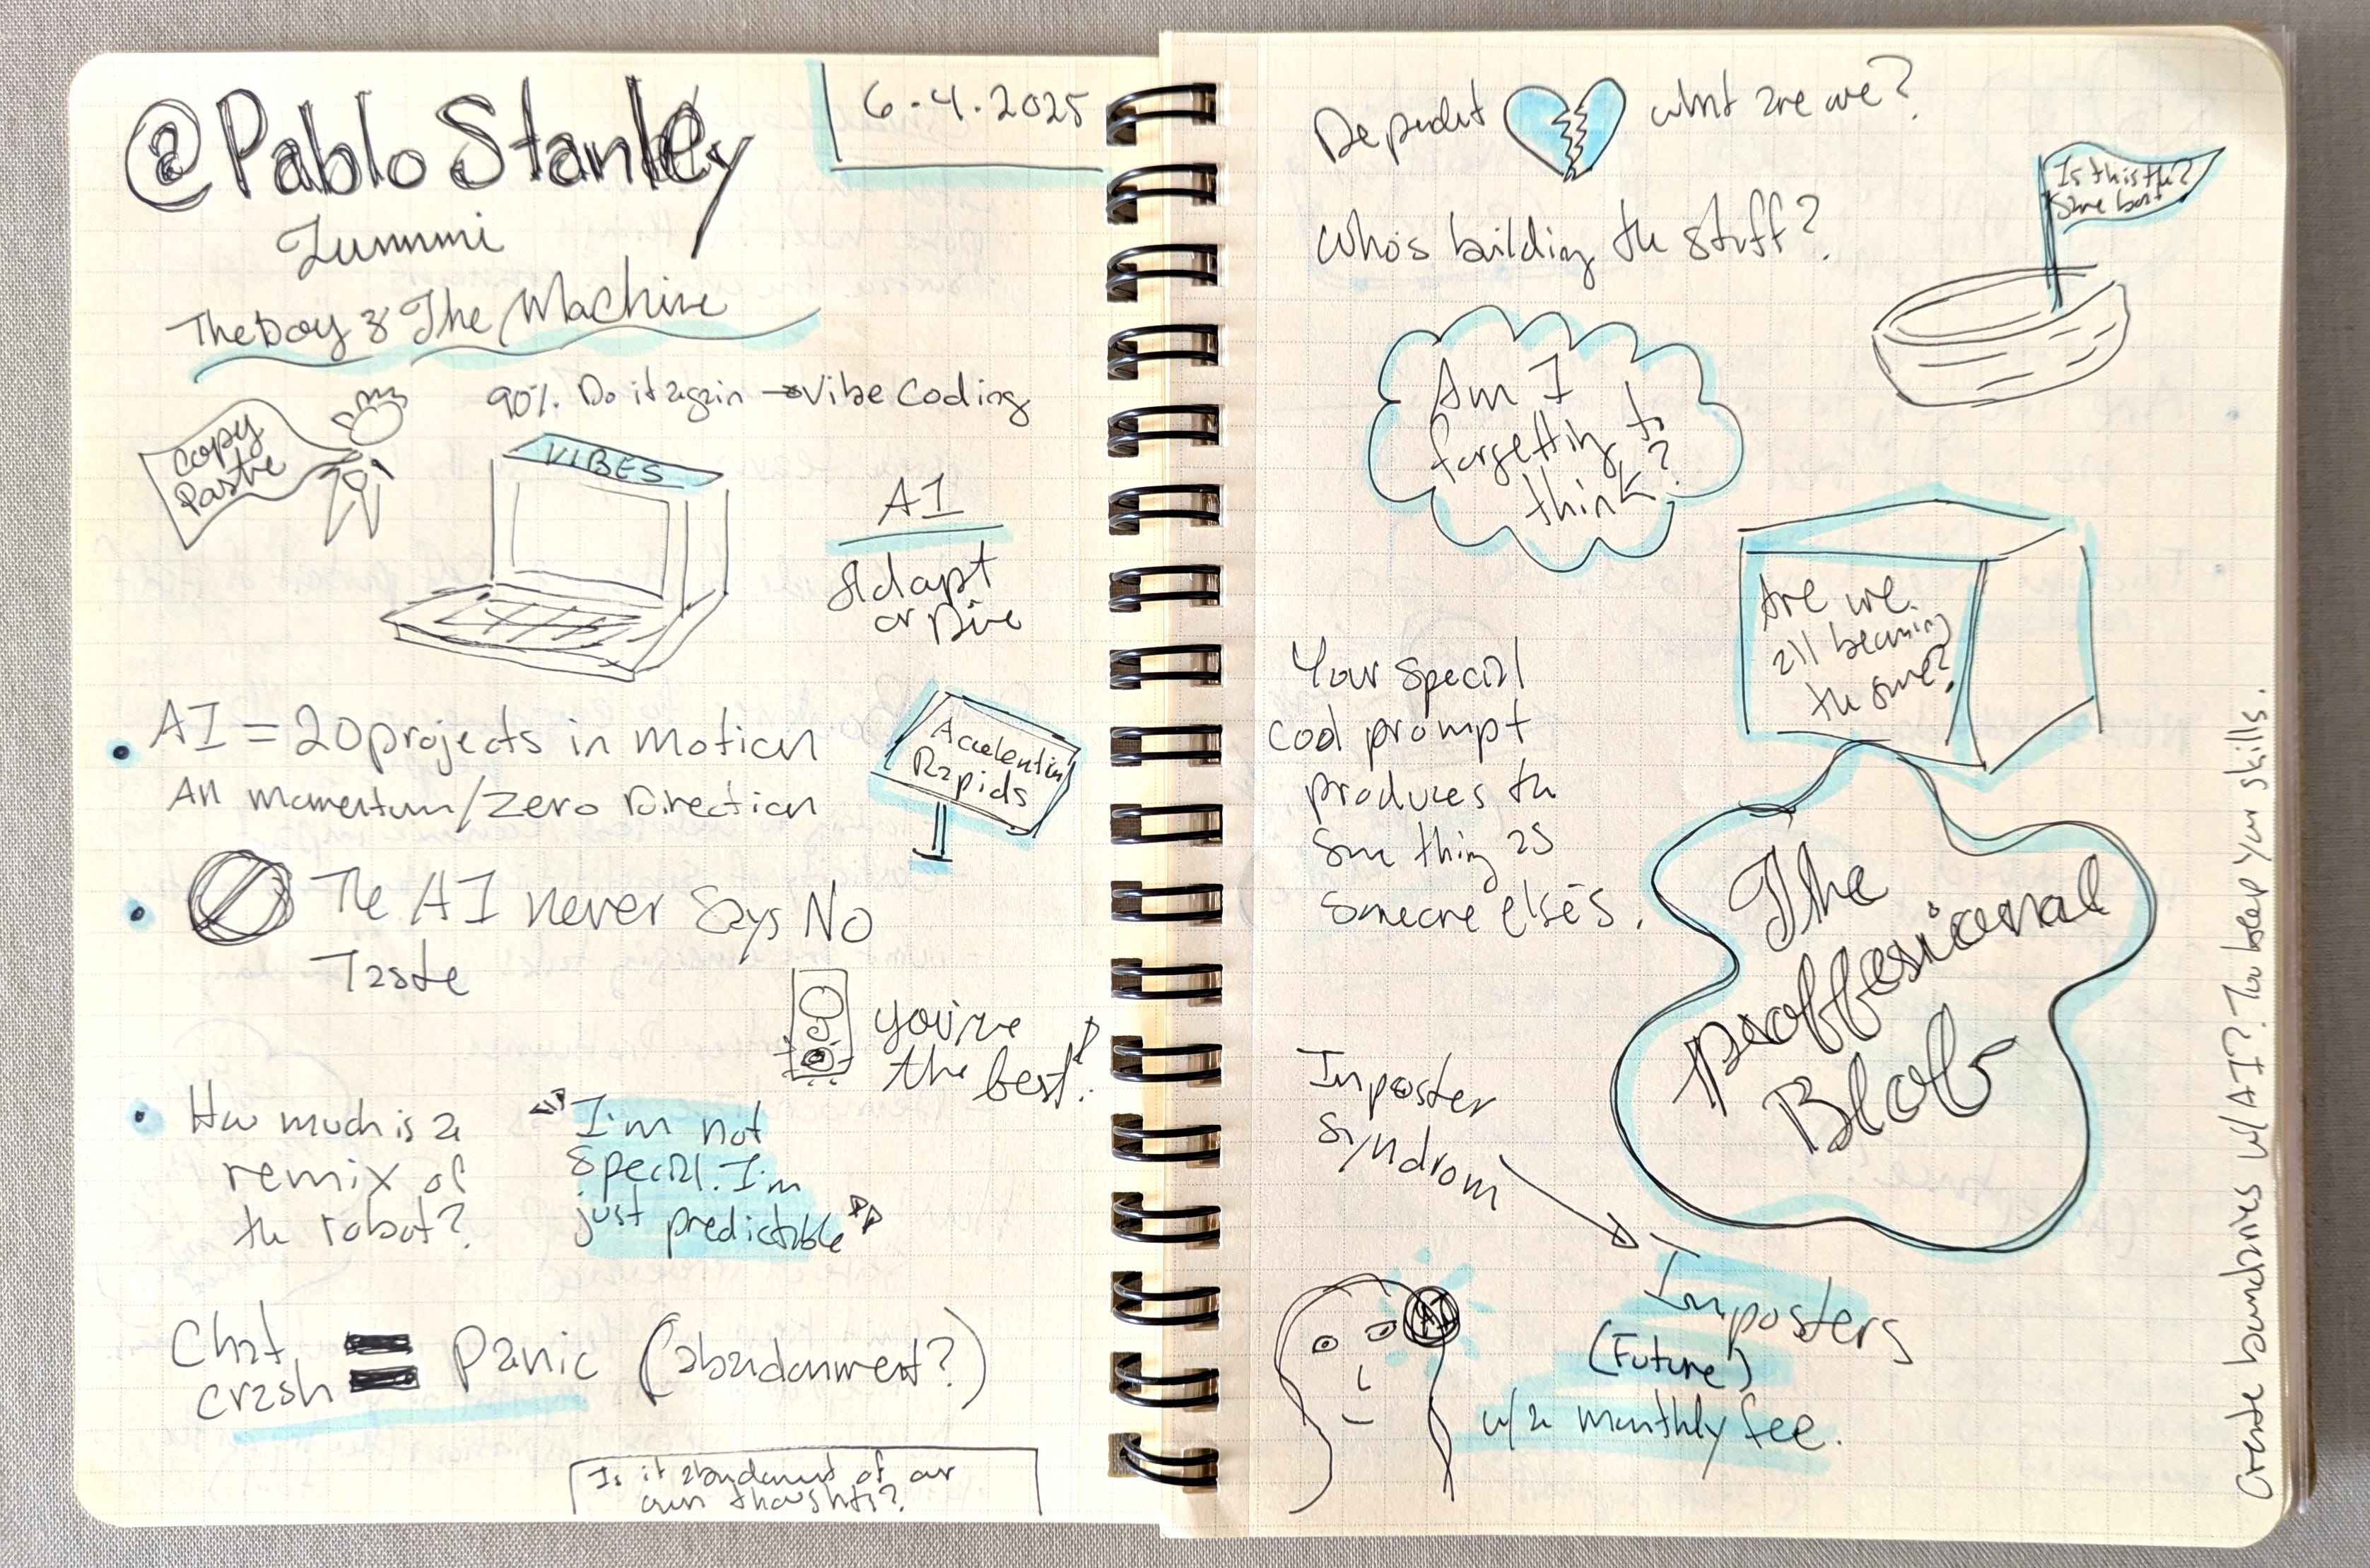 @Pablo Stanley
6.4.2025
Lummi
The Boy & The Machine
90% Do it again → Vibe Coding
Copy
Paste
VIBES
AI
Adapt
or Die
• AI = 20 projects in motion
All momentum/Zero Direction
Accelerating
Rapids
• The AI never Says No
Taste
you're
the best!
• How much is a
remix of
the robot?
"I'm not
Special. I'm
just predictable"
Chat
crash = Panic (abandonment?)
Is it abandonment of our
own thoughts?
Dependent what are we?
Who's building the stuff?
Is this the?
Same boat
Am I
forgetting to
think?
Are we
all becoming
the same?
Your Special
cool prompt
produces the
same thing as
someone else's.
The
proffesional
Blob
Imposter
Syndrom
Imposters
(Future)
w/a monthly fee.
Create boundries w/AI? To keep your skills.